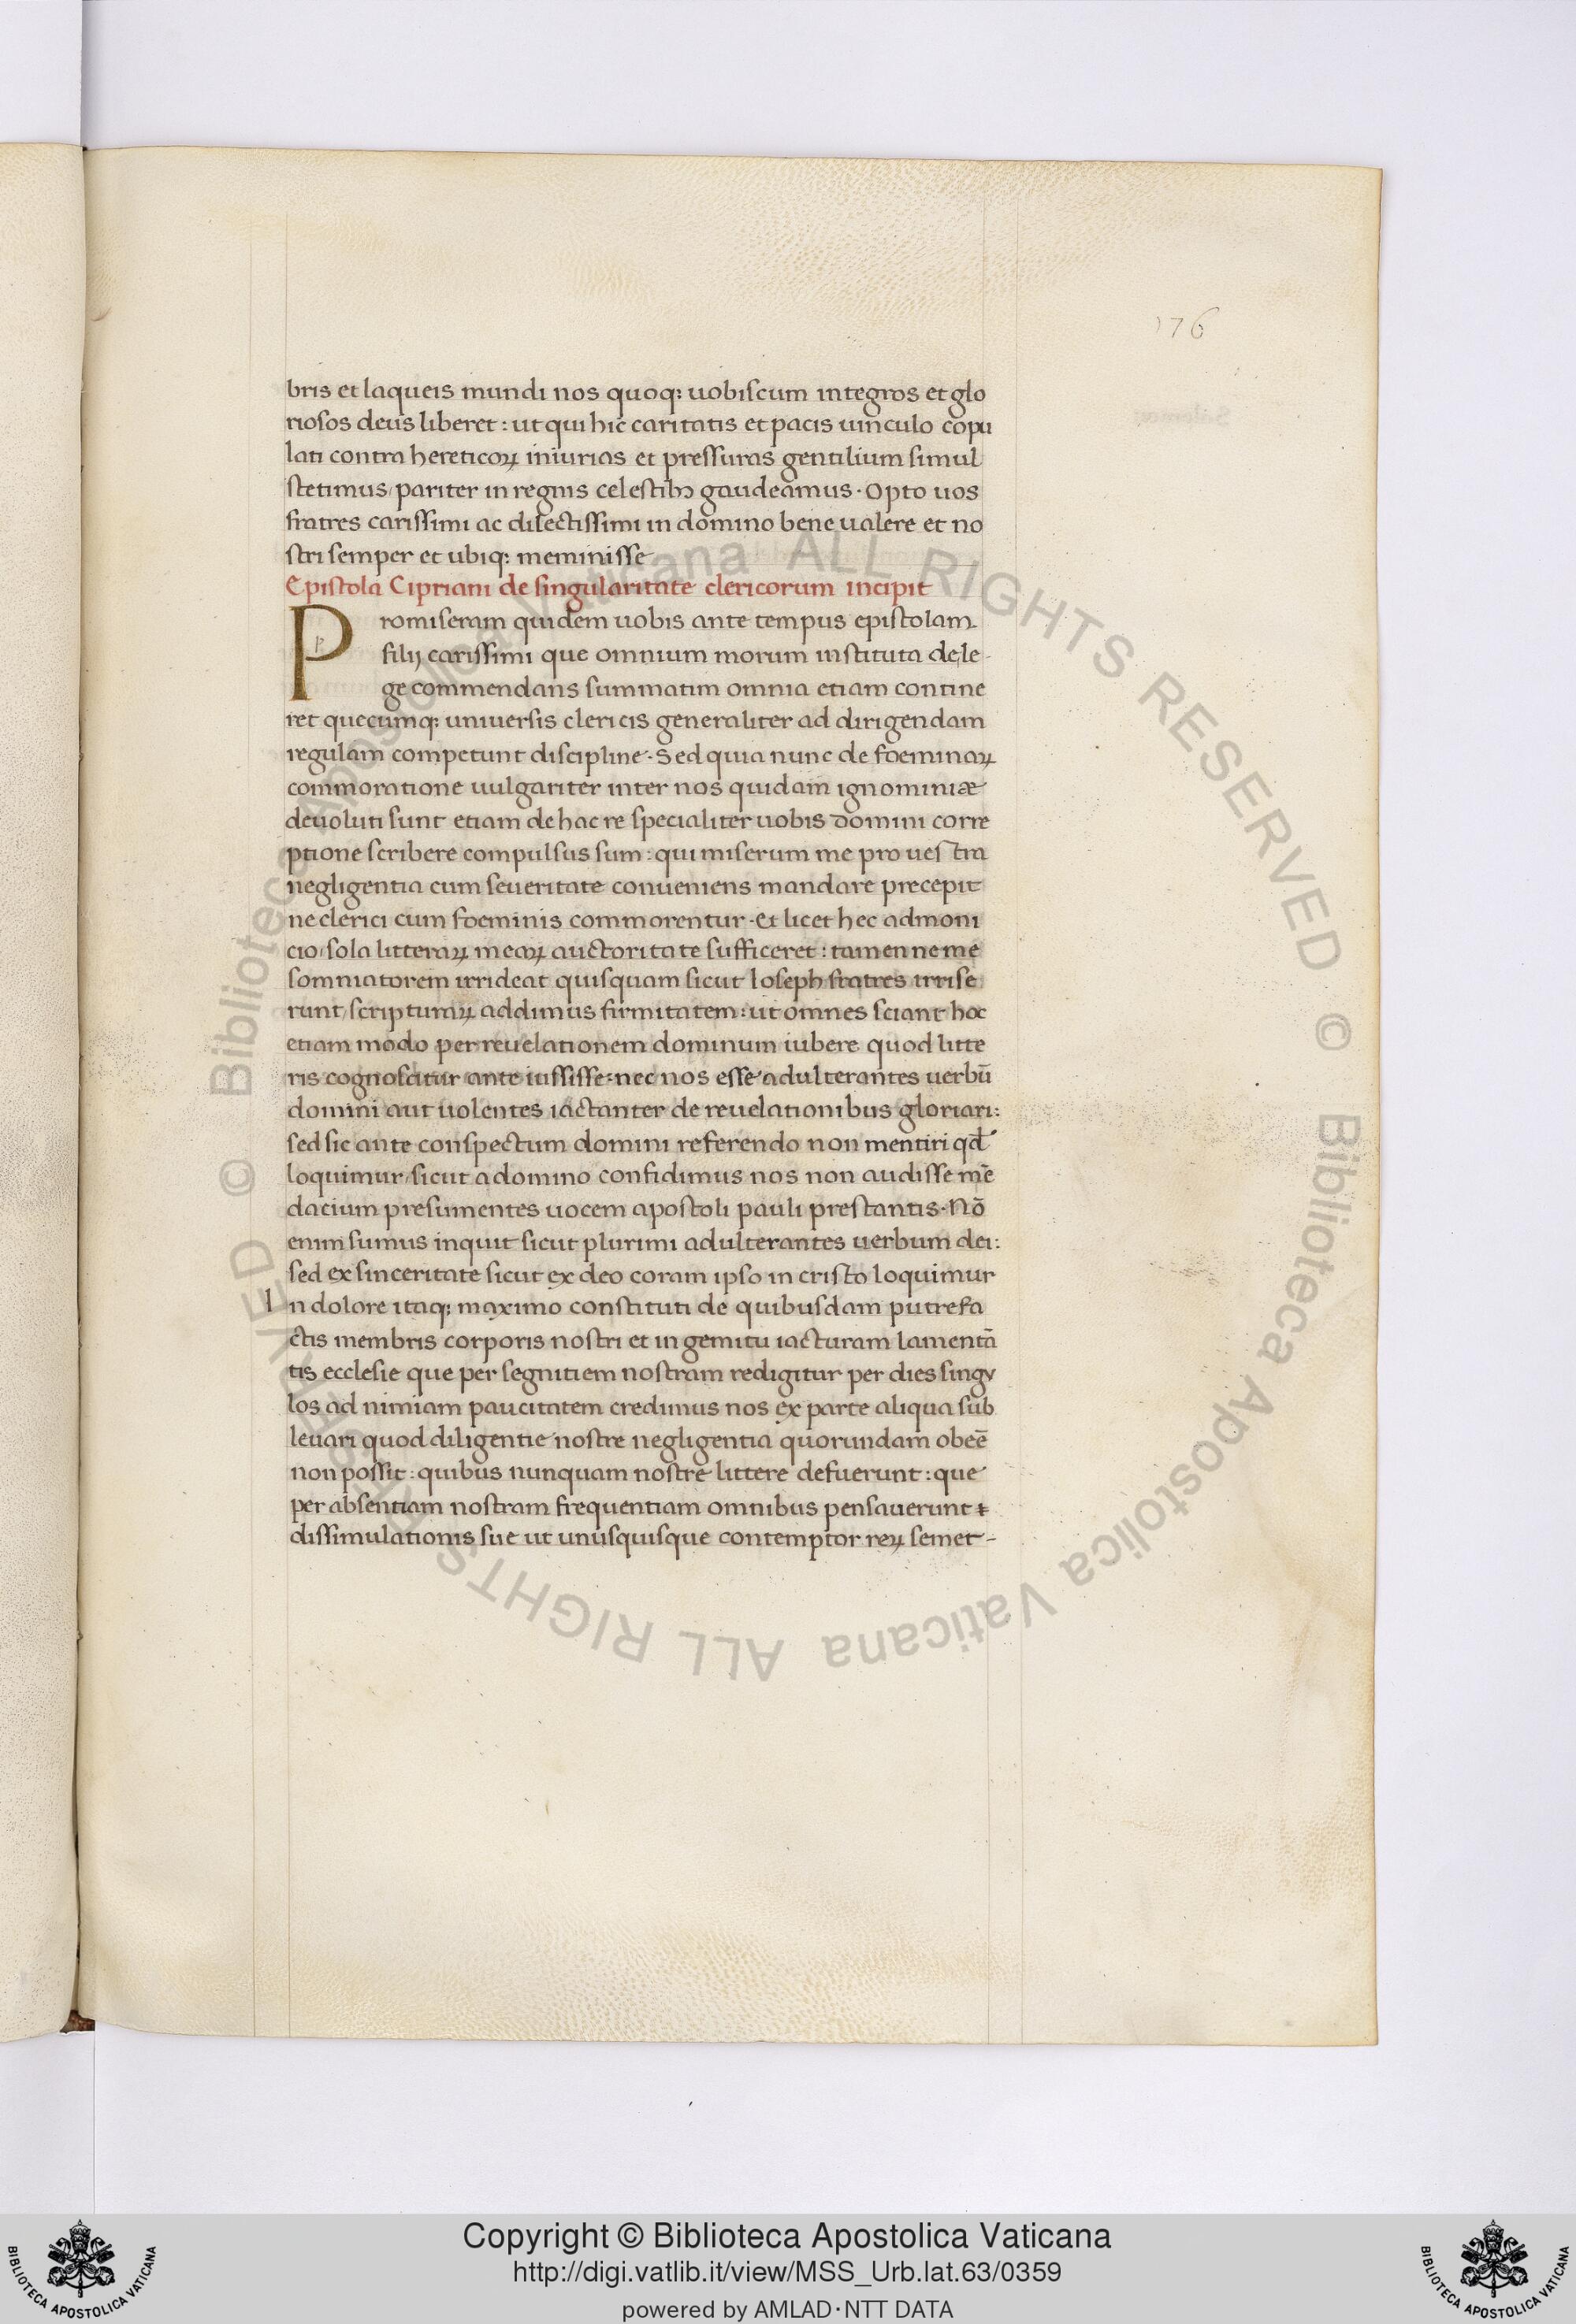 176
bris et laqueis mundi nos quoq; uobiscum integros et glo
riosos deus liberet : ut qui hic caritatis et pacis uinculo copu
lati contra hereticoꝝ iniurias et pressuras gentilium simul
stetimus/pariter in regnis celestibꝫ gaudeamus · Opto uos
fratres carissimi ac dilectissimi in domino bene ualere et no
stri semper et ubiq; meminisse
Epistola Cipriani de singularitate clericorum incipit
Promiseram quidem uobis ante tempus epistolam
filij carissimi que omnium morum instituta de le-
ge commendans summatim omnia etiam contine
ret quecumq; uniuersis clericis generaliter ad dirigendam
regulam competunt discipline · Sed quia nunc de foeminaꝝ
commoratione uulgariter inter nos quidam ignominiæ
deuoluti sunt etiam de hac re specialiter uobis domini corre
ptione scribere compulsus sum : qui miserum me pro uestra
negligentia cum seueritate conueniens mandare precepit
ne clerici cum foeminis commorentur · Et licet hec admoni
cio/sola litteraꝝ meaꝝ auctoritate sufficeret : tamen ne me
somniatorem irrideat quisquam sicut Ioseph fratres irrise
runt/scripturaꝝ addimus firmitatem : ut omnes sciant hoc
etiam modo per reuelationem dominum iubere quod litte
ris cognoscitur ante iussisse : nec nos esse adulterantes uerbū
domini aut uolentes iactanter de reuelationibus gloriari :
sed sic ante conspectum domini referendo non mentiri qđ
loquimur/sicut a domino confidimus nos non audisse mē
dacium presumentes uocem apostoli pauli prestantis · Nō
enim sumus inquit sicut plurimi adulterantes uerbum dei :
sed ex sinceritate sicut ex deo coram ipso in cristo loquimur
In dolore itaq; maximo constituti de quibusdam putrefa
ctis membris corporis nostri et in gemitu iacturam lamentā
tis ecclesie que per segnitiem nostram redigitur per dies singv
los ad nimiam paucitatem credimus nos ex parte aliqua sub
leuari quod diligentie nostre negligentia quorundam obeē
non possit : quibus nunquam nostre littere defuerunt : que
per absentiam nostram frequentiam omnibus pensauerunt ⁊
dissimulationis sue ut unusquisque contemptor reꝝ semet-
© Biblioteca Apostolica Vaticana ALL RIGHTS RESERVED
© Biblioteca Apostolica Vaticana ALL RIGHTS RESERVED
BIBLIOTECA APOSTOLICA VATICANA
Copyright © Biblioteca Apostolica Vaticana
http://digi.vatlib.it/view/MSS_Urb.lat.63/0359
powered by AMLAD·NTT DATA
BIBLIOTECA APOSTOLICA VATICANA